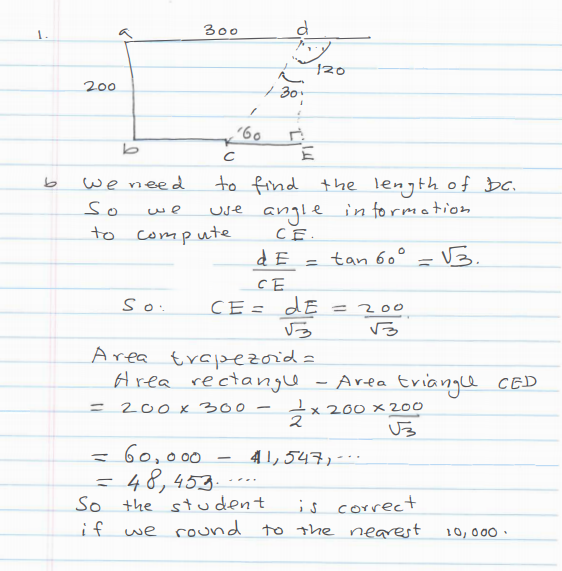 1. a 300 d
120
200
30
60
b C E
b We need to find the length of DC.
So we use angle information
to compute CE.
dE/CE = tan 60° = √3.
So: CE = dE/√3 = 200/√3.
Area trapezoid =
Area rectangle - Area triangle CED
= 200 x 300 - 1/2 x 200 x 200/√3
= 60,000 - 11,547, ...
= 48,453. .....
So the student is correct
if we round to the nearest 10,000.